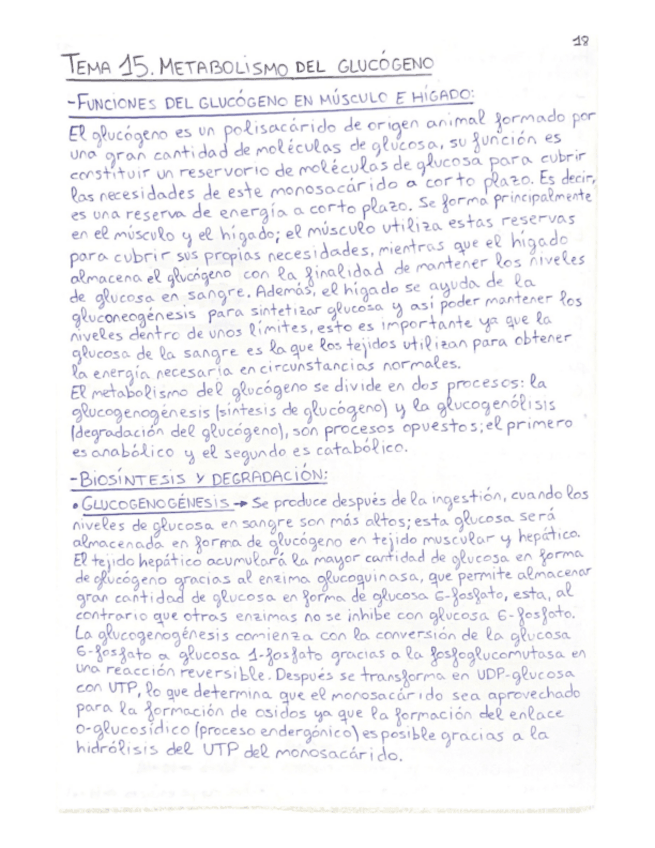 18
TEMA 15. METABOLISMO DEL GLUCÓGENO
-FUNCIONES DEL GLUCÓGENO EN MÚSCULO E HÍGADO:
El glucógeno es un polisacárido de origen animal formado por
una gran cantidad de moléculas de glucosa, su función es
constituir un reservorio de moléculas de glucosa para cubrir
las necesidades de este monosacárido a corto plazo. Es decir,
es una reserva de energía a corto plazo. Se forma principalmente
en el músculo y el hígado; el músculo utiliza estas reservas
para cubrir sus propias necesidades, mientras que el hígado
almacena el glucógeno con la finalidad de mantener los niveles
de glucosa en sangre. Además, el hígado se ayuda de la
gluconeogénesis para sintetizar glucosa y así poder mantener los
niveles dentro de unos límites, esto es importante ya que la
glucosa de la sangre es la que los tejidos utilizan para obtener
la energía necesaria en circunstancias normales.
El metabolismo del glucógeno se divide en dos procesos: la
glucogenogénesis (síntesis de glucógeno) y la glucogenólisis
(degradación del glucógeno), son procesos opuestos; el primero
es anabólico y el segundo es catabólico.
-BIOSÍNTESIS Y DEGRADACIÓN:
• GLUCOGENOGÉNESIS → Se produce después de la ingestión, cuando los
niveles de glucosa en sangre son más altos; esta glucosa será
almacenada en forma de glucógeno en tejido muscular y hepático.
El tejido hepático acumulará la mayor cantidad de glucosa en forma
de glucógeno gracias al enzima glucoquinasa, que permite almacenar
gran cantidad de glucosa en forma de glucosa 6-fosfato, esta, al
contrario que otras enzimas no se inhibe con glucosa 6-fosfato.
La glucogenogénesis comienza con la conversión de la glucosa
6-fosfato a glucosa 1-fosfato gracias a la fosfoglucomutasa en
una reacción reversible. Después se transforma en UDP-glucosa
con UTP, lo que determina que el monosacárido sea aprovechado
para la formación de osidos ya que la formación del enlace
o-glucosídico (proceso endergónico) es posible gracias a la
hidrólisis del UTP del monosacárido.